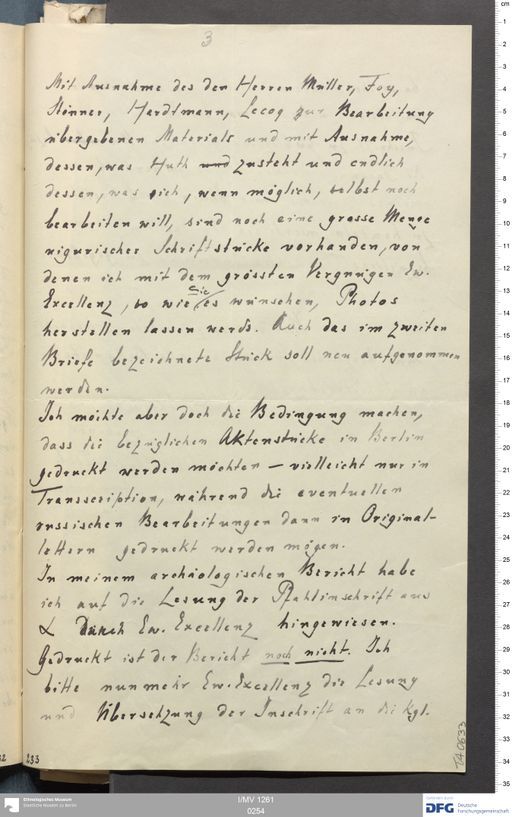 3
Mit Ausnahme des den Herren Müller, Foy,
Stönner, Hardtmann, Lecoq zur Bearbeitung
übergebenen Materials und mit Ausnahme,
dessen, was Huth und zusteht und endlich
dessen, was sich, wenn möglich, selbst noch
bearbeiten will, sind noch eine grosse Menge
uigurischer Schriftstücke vorhanden, von
denen ich mit dem grössten Vergnügen Ew.
Sie
Excellenz, so wie es wünschen, Photos
herstellen lassen werde. Auch das im zweiten
Briefe bezeichnete Stück soll neu aufgenommen
werden.
Ich möchte aber doch die Bedingung machen,
dass die bezüglichen Aktenstücke in Berlin
gedruckt werden möchten – vielleicht nur in
Transscription, während die eventuellen
russischen Bearbeitungen dann in Original-
lettern gedruckt werden mögen.
In meinem archäologischen Bericht habe
ich auf die Lesung der Pfahlinschrift aus
α durch Ew. Excellenz hingewiesen.
Gedruckt ist der Bericht noch nicht. Ich
bitte nunmehr Ew. Excellenz die Lesung
und Übersetzung der Inschrift an die Kgl.
233
I/MV 1261
0254
Ethnologisches Museum
Staatliche Museen zu Berlin
DFG Deutsche
Forschungsgemeinschaft